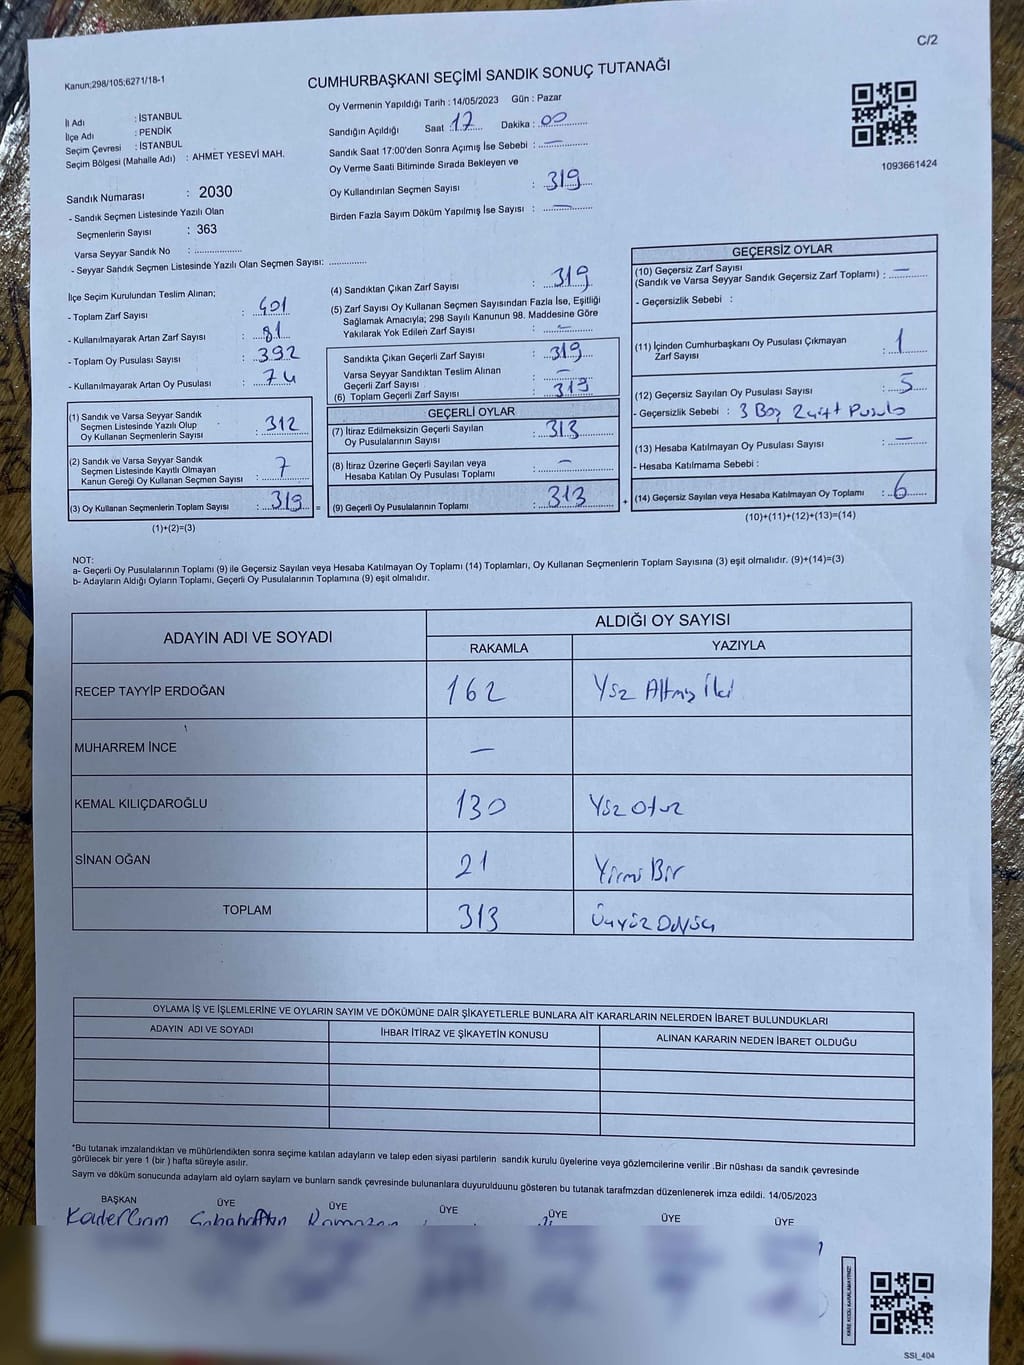 C/2
Kanun;298/105;6271/18-1
CUMHURBAŞKANI SEÇİMİ SANDIK SONUÇ TUTANAĞI
İl Adı : İSTANBUL
İlçe Adı : PENDİK
Seçim Çevresi : İSTANBUL
Seçim Bölgesi (Mahalle Adı) : AHMET YESEVİ MAH.
Sandık Numarası : 2030
- Sandık Seçmen Listesinde Yazılı Olan
Seçmenlerin Sayısı : 363
Varsa Seyyar Sandık No : ..................
- Seyyar Sandık Seçmen Listesinde Yazılı Olan Seçmen Sayısı: ..............
Oy Vermenin Yapıldığı Tarih : 14/05/2023 Gün : Pazar
Sandığın Açıldığı Saat : 17 Dakika : 00
Sandık Saat 17:00'den Sonra Açımış İse Sebebi : —
Oy Verme Saati Bitiminde Sırada Bekleyen ve
Oy Kullandırılan Seçmen Sayısı : 319
Birden Fazla Sayım Döküm Yapılmış İse Sayısı : —
1093661424
İlçe Seçim Kurulundan Teslim Alınan;
- Toplam Zarf Sayısı : 401
- Kullanılmayarak Artan Zarf Sayısı : 81
- Toplam Oy Pusulası Sayısı : 392
- Kullanılmayarak Artan Oy Pusulası : 74
(1) Sandık ve Varsa Seyyar Sandık
Seçmen Listesinde Yazılı Olup
Oy Kullanan Seçmenlerin Sayısı : 312
(2) Sandık ve Varsa Seyyar Sandık
Seçmen Listesinde Kayıtlı Olmayan
Kanun Gereği Oy Kullanan Seçmen Sayısı : 7
(3) Oy Kullanan Seçmenlerin Toplam Sayısı : 319 =
(1)+(2)=(3)
(4) Sandıktan Çıkan Zarf Sayısı : 319
(5) Zarf Sayısı Oy Kullanan Seçmen Sayısından Fazla İse, Eşitliği
Sağlamak Amacıyla; 298 Sayılı Kanunun 98. Maddesine Göre
Yakılarak Yok Edilen Zarf Sayısı : —
Sandıkta Çıkan Geçerli Zarf Sayısı : 319
Varsa Seyyar Sandıktan Teslim Alınan
Geçerli Zarf Sayısı : —
(6) Toplam Geçerli Zarf Sayısı : 319
GEÇERLİ OYLAR
(7) İtiraz Edilmeksizin Geçerli Sayılan
Oy Pusulalarının Sayısı : 313
(8) İtiraz Üzerine Geçerli Sayılan veya
Hesaba Katılan Oy Pusulası Toplamı : —
(9) Geçerli Oy Pusulalarının Toplamı : 313 +
GEÇERSİZ OYLAR
(10) Geçersiz Zarf Sayısı
(Sandık ve Varsa Seyyar Sandık Geçersiz Zarf Toplamı) : —
- Geçersizlik Sebebi :
(11) İçinden Cumhurbaşkanı Oy Pusulası Çıkmayan
Zarf Sayısı : 1
(12) Geçersiz Sayılan Oy Pusulası Sayısı : 5
- Geçersizlik Sebebi : 3 Boş 2 çift Pusula
(13) Hesaba Katılmayan Oy Pusulası Sayısı : —
- Hesaba Katılmama Sebebi :
(14) Geçersiz Sayılan veya Hesaba Katılmayan Oy Toplamı : 6
(10)+(11)+(12)+(13)=(14)
NOT:
a- Geçerli Oy Pusulalarının Toplamı (9) ile Geçersiz Sayılan veya Hesaba Katılmayan Oy Toplamı (14) Toplamları, Oy Kullanan Seçmenlerin Toplam Sayısına (3) eşit olmalıdır. (9)+(14)=(3)
b- Adayların Aldığı Oyların Toplamı, Geçerli Oy Pusulalarının Toplamına (9) eşit olmalıdır.
ADAYIN ADI VE SOYADI ALDIĞI OY SAYISI
RAKAMLA YAZIYLA
RECEP TAYYİP ERDOĞAN 162 Yüz Altmış İki
MUHARREM İNCE —
KEMAL KILIÇDAROĞLU 130 Yüz Otuz
SİNAN OĞAN 21 Yirmi Bir
TOPLAM 313 Üçyüz Onüç
OYLAMA İŞ VE İŞLEMLERİNE VE OYLARIN SAYIM VE DÖKÜMÜNE DAİR ŞİKAYETLERLE BUNLARA AİT KARARLARIN NELERDEN İBARET BULUNDUKLARI
ADAYIN ADI VE SOYADI İHBAR İTİRAZ VE ŞİKAYETİN KONUSU ALINAN KARARIN NEDEN İBARET OLDUĞU
*Bu tutanak imzalandıktan ve mühürlendikten sonra seçime katılan adayların ve talep eden siyasi partilerin sandık kurulu üyelerine veya gözlemcilerine verilir .Bir nüshası da sandık çevresinde
görülecek bir yere 1 (bir ) hafta süreyle asılır.
Sayım ve döküm sonucunda adaylarm ald oylarm saylarm ve bunlarm sandk çevresinde bulunanlara duyurulduunu gösteren bu tutanak tarafmzdan düzenlenerek imza edildi. 14/05/2023
BAŞKAN ÜYE ÜYE ÜYE ÜYE ÜYE ÜYE
Sabahattin Ramazan
KARE KODU KARALAMAYINIZ!
SSI_404